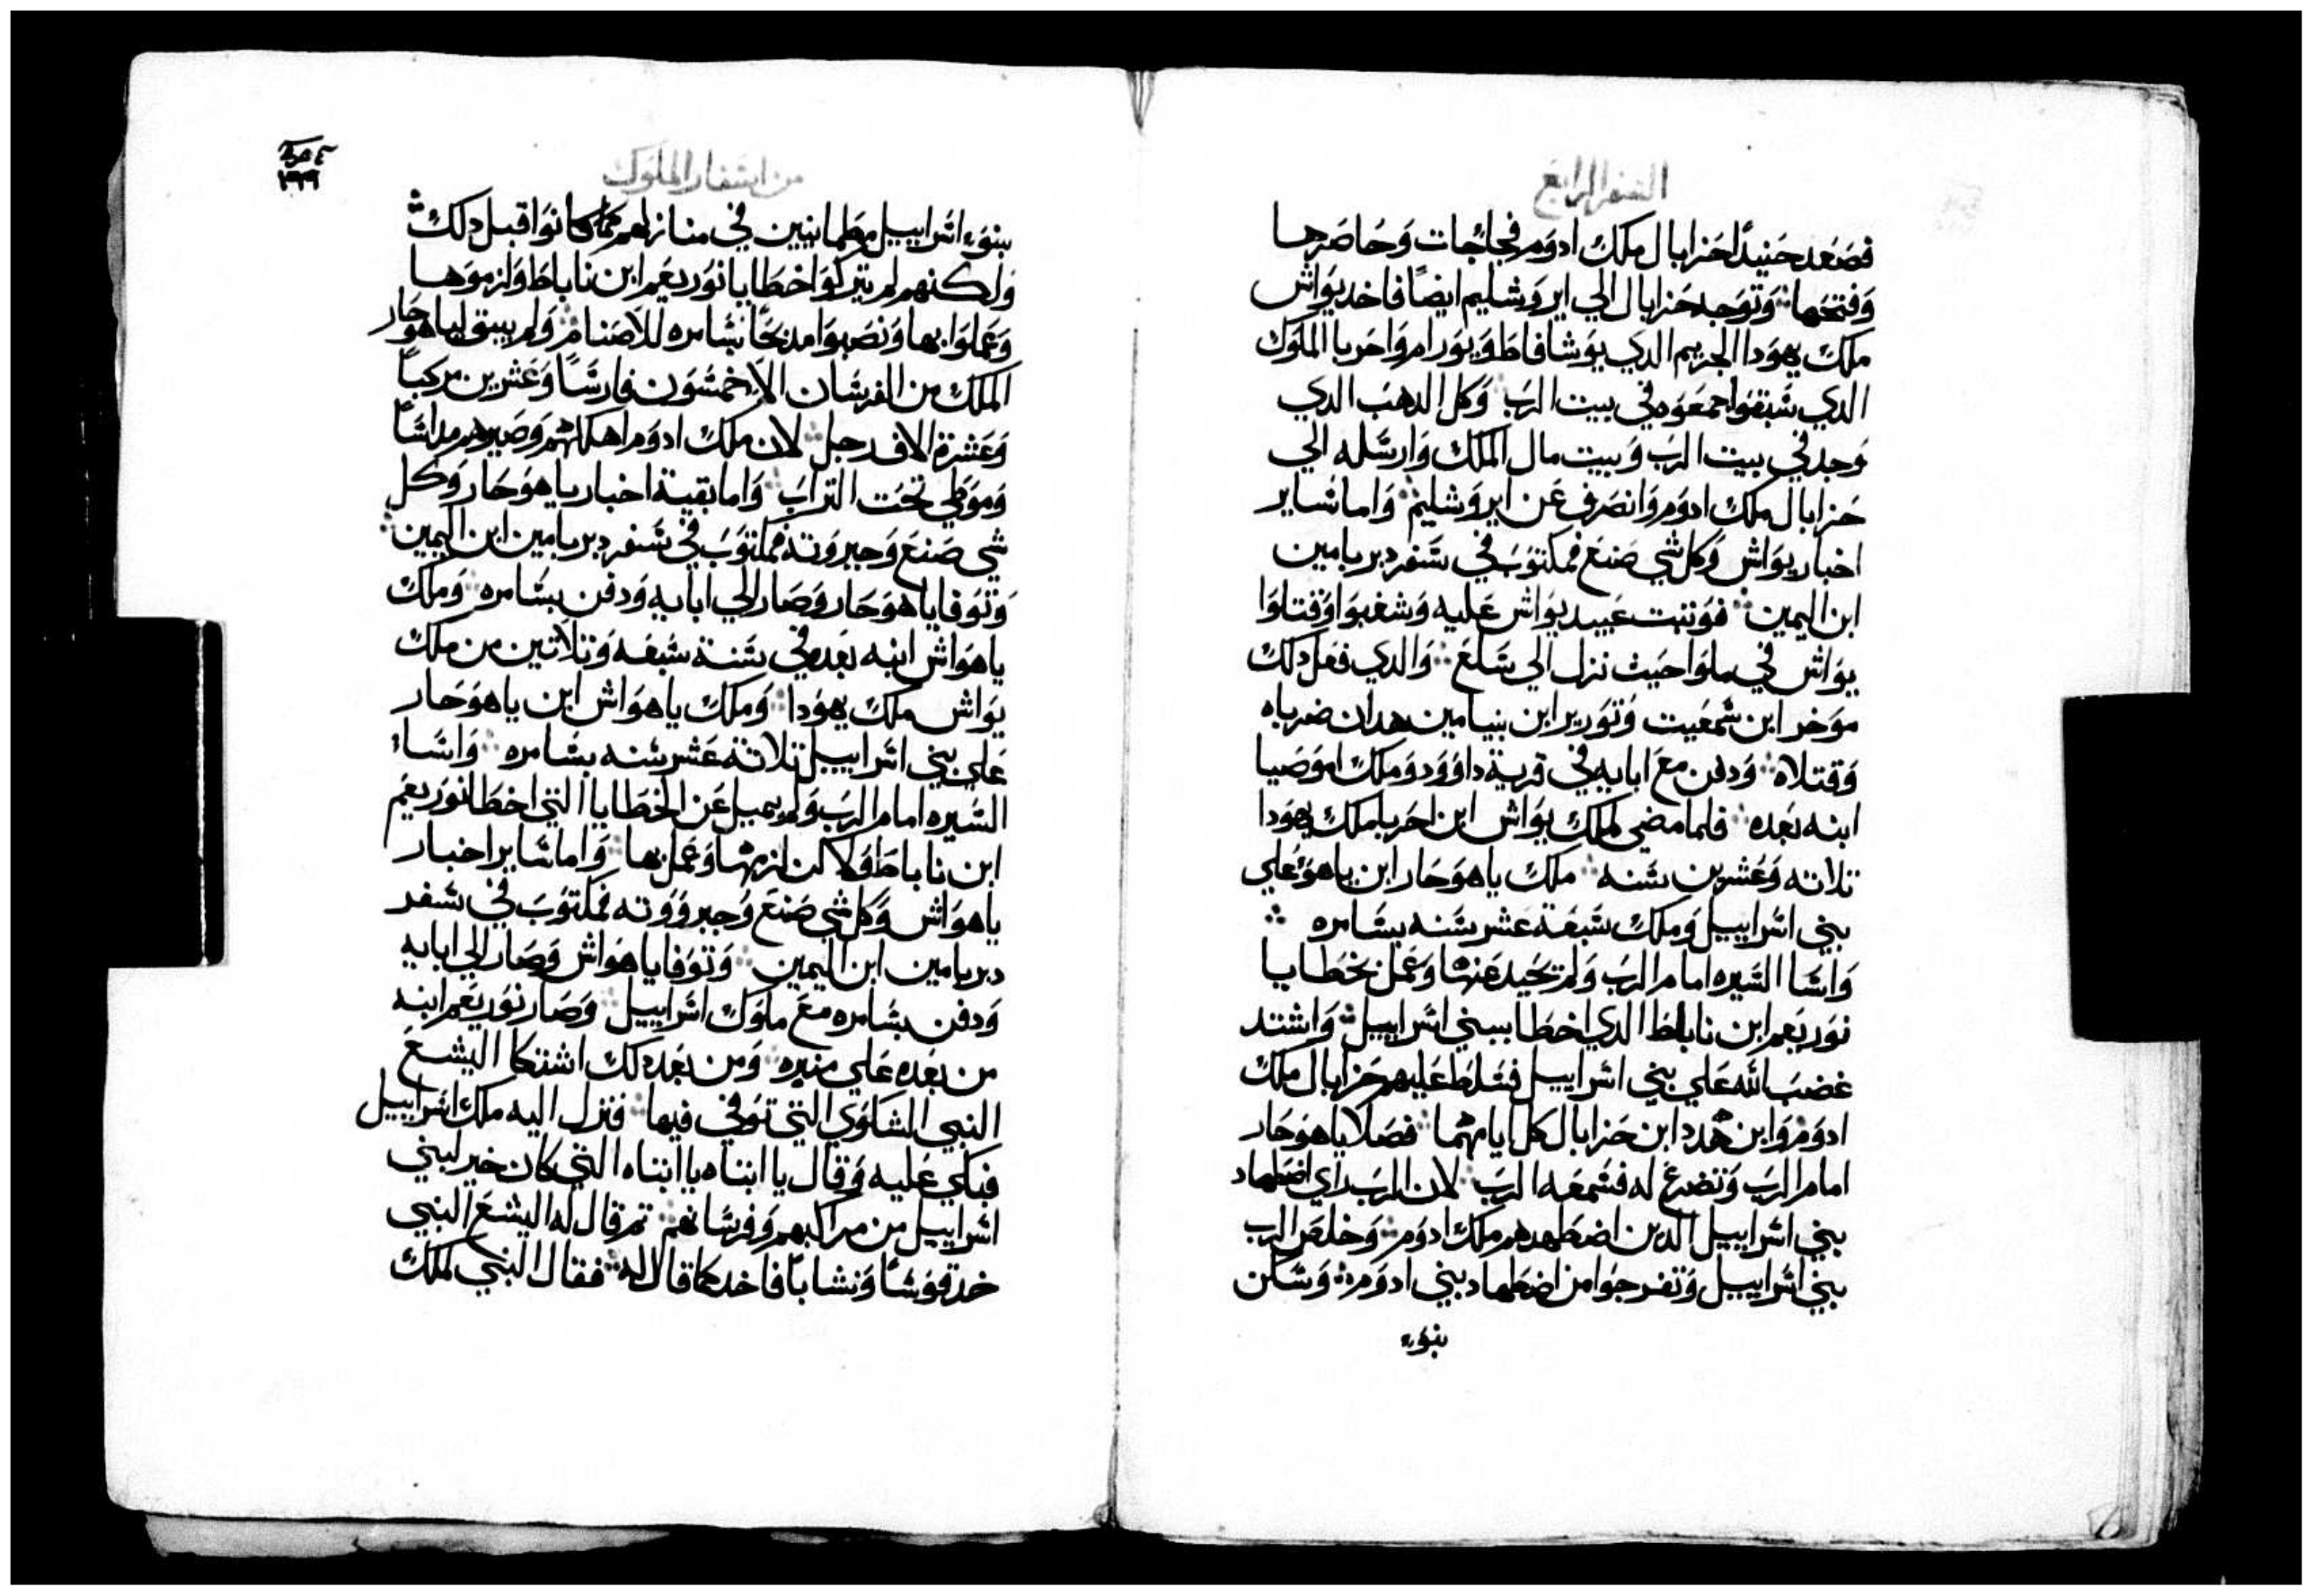 السفر الرابع
فصعد حنيدًا حزابال ملك ادوم فجا جات وحاصرها
وفتحها وتوجه حزابال الي ايروشليم ايضًا فاخد يواش
ملك يهودا الجريم الدي يوشافاط ويورام واحربا الملوك
الدي سبقوا جمعوه في بيت الرب وكل الدهب الدي
وجد في بيت الرب وبيت مال الملك وارسله الي
حزابال ملك ادوم وانصرف عن ايروشليم واما ساير
اخبار يواش وكل شي صنع فمكتوب في سفر دبريامين
ابن اليمين فوتبت عبيد يواش عليه وشغبوا وقتلوا
يواش في ملوا حيث نزل الي سلع والدي فعل دلك
موخر ابن شمعيت وتورير ابن بنيامين هدان ضرباه
وقتلاه ودفن مع ابايه في قرية داوود وملك اموصيا
ابنه بعده فلما مضي لملك يواش ابن احربا ملك يهودا
تلاته وعشرين سنه ملك ياهوحاز ابن ياهو علي
بني اسراييل وملك سبعة عشر سنه بسامره
واسا السيره امام الرب ولم تحيد عنها وعمل بخطايا
نوربعم ابن ناباط الدي اخطا ببني اسراييل واشتد
غضب الله علي بني اسراييل فسلط عليهم حزابال ملك
ادوم وابن هدد ابن حزابال كل ايامهما فصلا ياهوحاز
امام الرب وتضرع له فسمعه الرب لان الرب راي اضطهاد
بني اسراييل الدين اضطهدهم ملك ادوم وخلص الرب
بني اسراييل وتفرجوا من اضطهاد بني ادوم وسكن
بنوء
من اسفار الملوك
٢٦٩
بنوء اسراييل مطمانيين في منازلهم كما كانوا قبل دلك
ولكنهم لم يتركوا خطايا نوربعم ابن ناباط ولزموها
وعملوا بها ونصبوا مدبحًا بسامره للاصنام ولم يبقي لياهوحاز
الملك من الفرسان الا خمسون فارسًا وعشرين مركبًا
وعشرة الاف رجل لان ملك ادوم اهلكهم وصيرهم مداسًا
وموطي تحت التراب واما بقية اخبار ياهوحاز وكل
شي صنع وجبروته فمكتوب في سفر دبريامين ابن اليمين
وتوفا ياهوحاز وصار الي ابايه ودفن بسامره وملك
ياهواش ابنه بعده في سنة سبعه وتلاتين من ملك
يواش ملك يهودا وملك ياهواش ابن ياهوحاز
علي بني اسراييل تلاتة عشر سنه بسامره واساء
السيره امام الرب ولم يميل عن الخطايا التي اخطا نوربعم
ابن ناباط ولاكن لزمها وعمل بها واما ساير اخبار
ياهواش وكل شي صنع وجبرووته فمكتوب في سفر
دبريامين ابن اليمين وتوفا ياهواش وصار الي ابايه
ودفن بسامره مع ملوك اسراييل وصار نوربعم ابنه
من بعده علي منبره ومن بعد دلك اشتكا اليشع
النبي الشكوي التي توفي فيها فنزل اليه ملك اسراييل
فبكي عليه وقال يا ابتاه يا ابتاه التي كان خير لبني
اسراييل من مراكبهم وفرسانهم تم قال له اليشع النبي
خد قوسًا ونشابًا فاخد كما قال له فقال النبي لملك